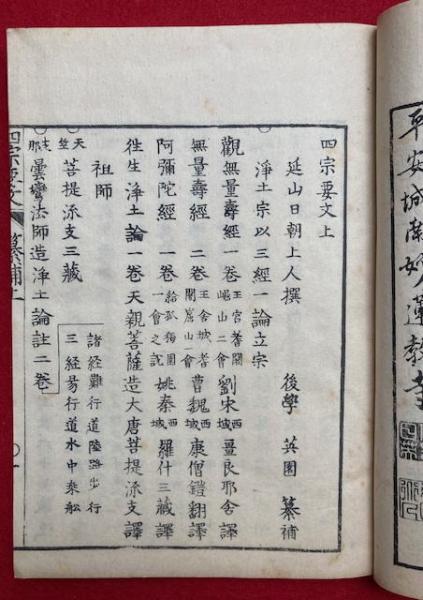 平安城南妙蓮教寺
四宗要文上
延山日朝上人撰　後學英園纂補
淨土宗以三經一論立宗
觀無量壽經一卷 王宮耆闍崛山二會 劉宋西域畺良耶舍譯
無量壽經二卷 王舍城耆闍崛山一會 曹魏西域康僧鎧翻譯
阿彌陀經一卷 給孤獨園一會之説 姚秦西域羅什三藏譯
徃生淨土論一卷天親菩薩造大唐菩提流支譯
祖師
天竺菩提流支三藏
支那曇鸞法師造淨土論註二卷
諸經難行道陸路步行
三經易行道水中乘舩
四宗要文 纂補上